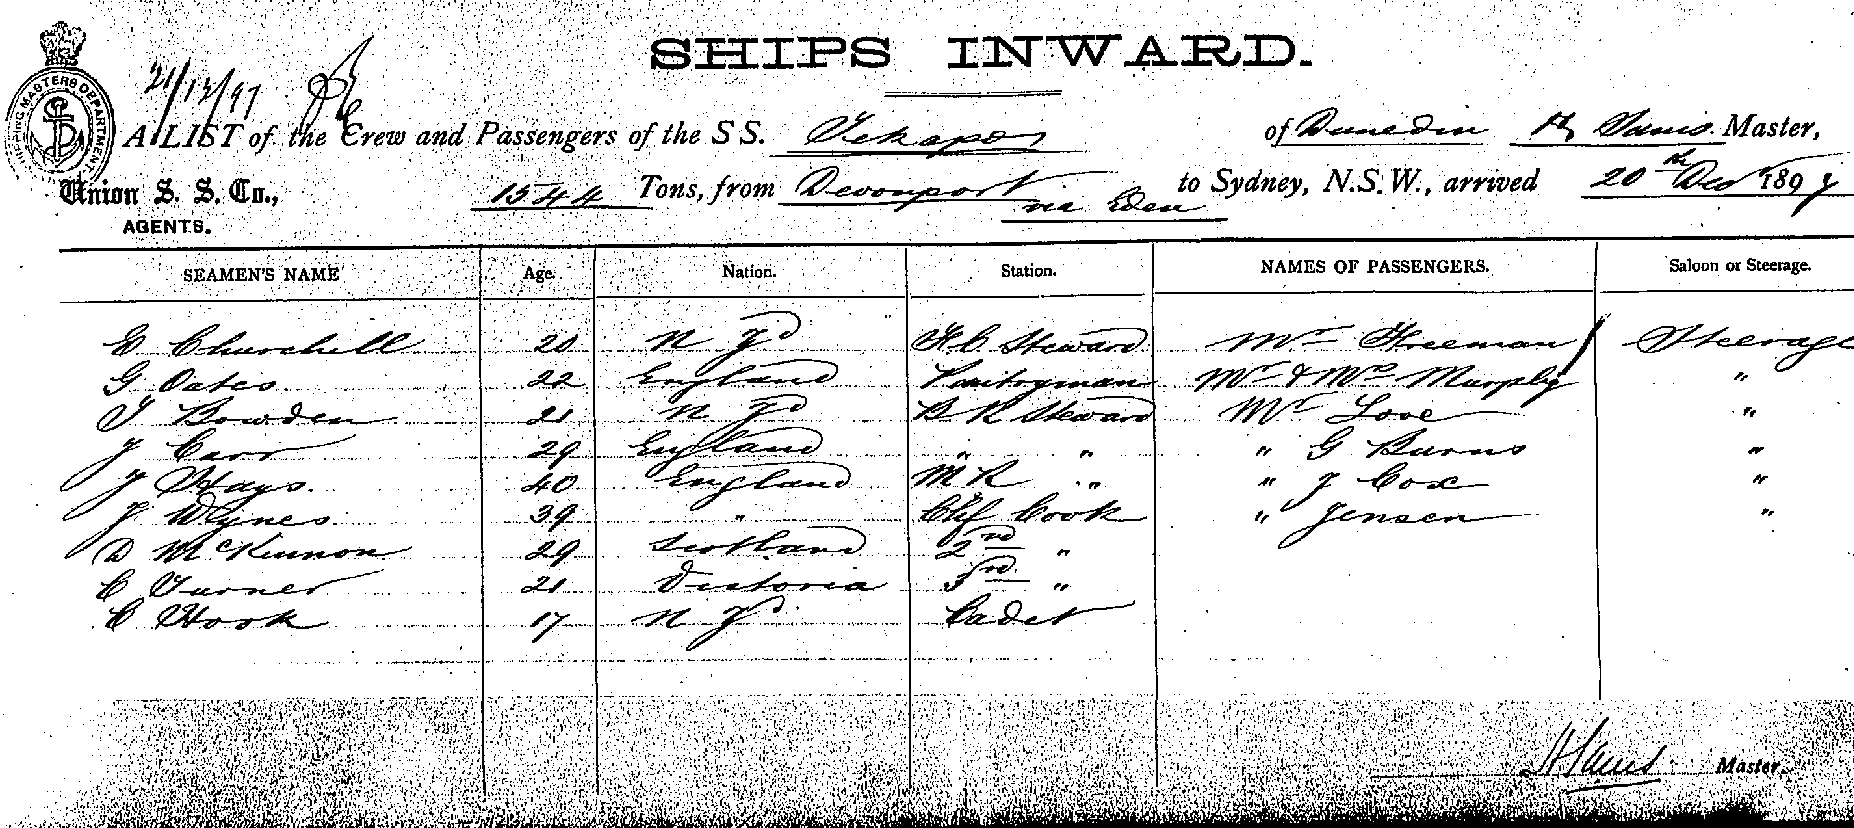 SHIPS INWARD.
SHIPPING MASTERS DEPARTMENT
21/12/97
A LIST of the Crew and Passengers of the S S. Tekapo of Dunedin Master,
Union S. S. Co., 1544 Tons, from Devonport via Eden to Sydney, N.S.W., arrived 20th Dec 1897
AGENTS.
SEAMEN'S NAME Age. Nation. Station. NAMES OF PASSENGERS. Saloon or Steerage.
E Churchill 20 N Zd F C Steward Mr Freeman Steerage
G Oates 22 England Pantryman Mr & Mrs Murphy "
T Bowden 21 N Zd B R Steward Mr Love "
J Carr 29 England " " " G Burns "
J Hays 40 England M R " " J Cox "
J Wynes 39 " Chf Cook " Jensen "
D McKinnon 29 Scotland 2nd "
C Turner 21 Victoria 3rd "
C Hook 17 N Zd Cadet
Master.